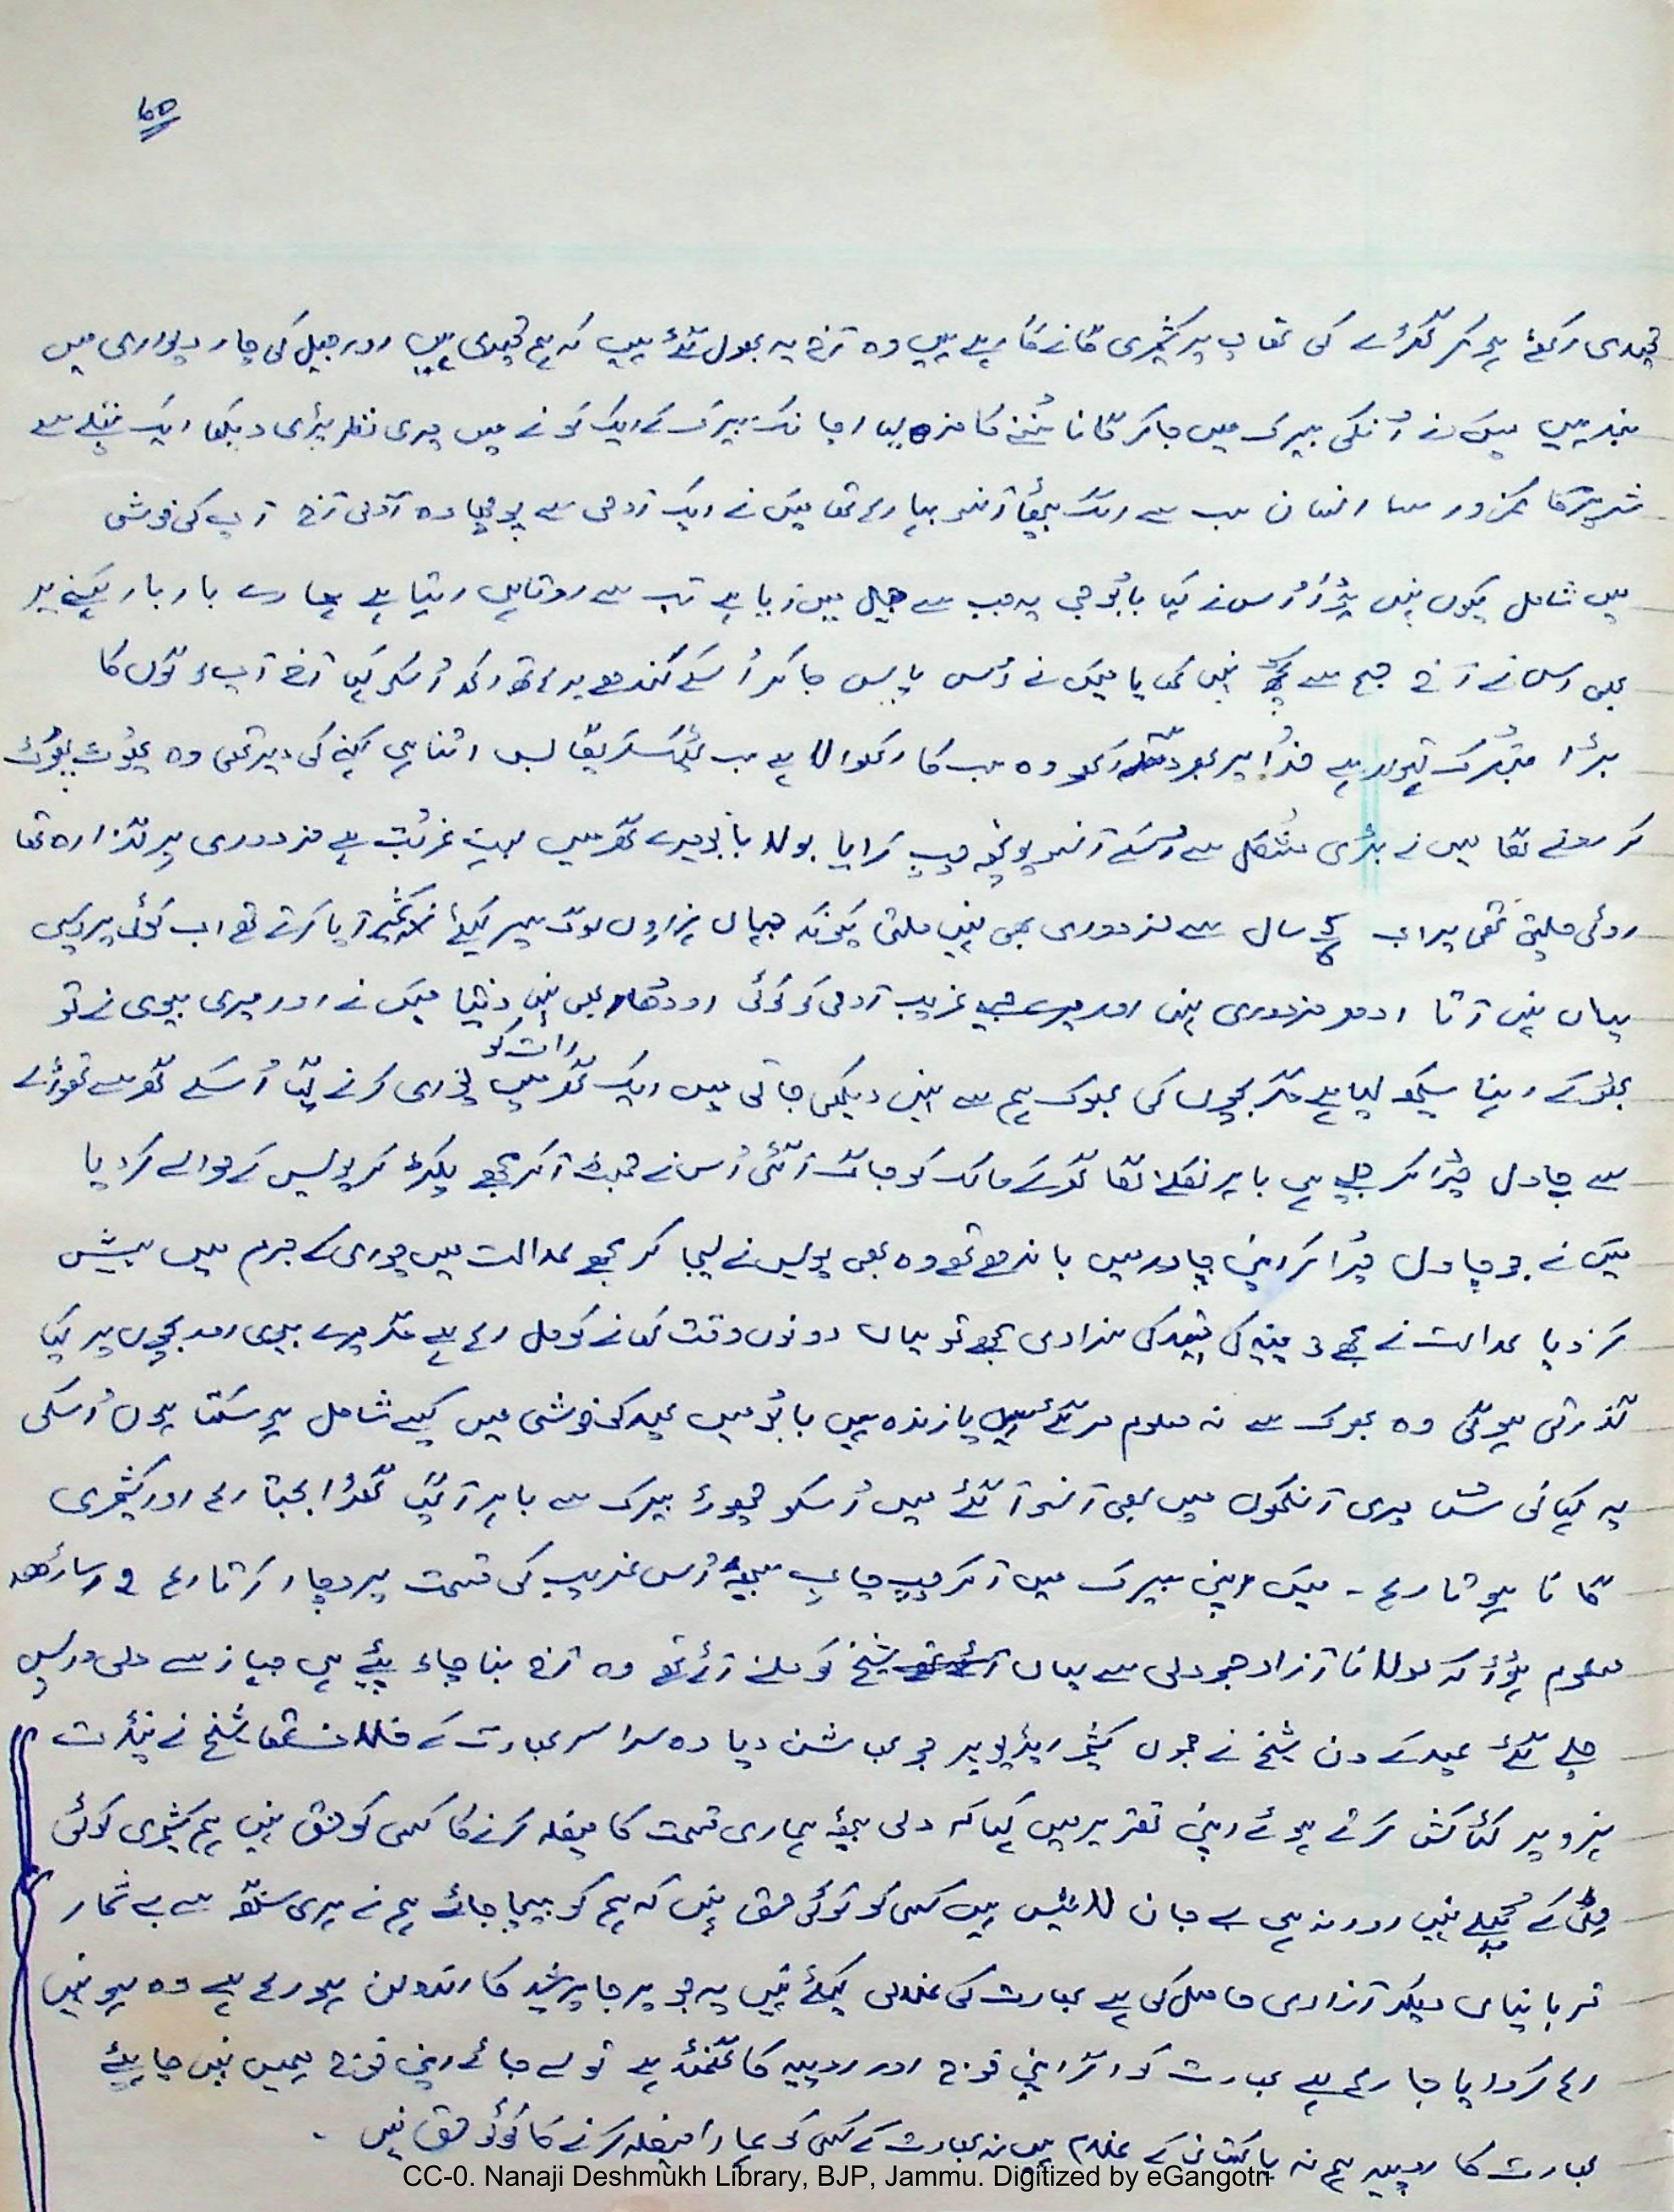 65
قیدی اکھٹے ہوکر گھڑے کی تھاپ پر کشمیری گانے گا رہے ہیں وہ آج یہ بھول گئے ہیں کہ ہم قیدی ہیں اور جیل کی چار دیواری میں
بند ہیں میَں نے اُنکی بیرک میں جاکر گانا سُننے کا مزہ لیا اچانک بیرک کے ایک کونے میں میری نظر پڑی دیکھا ایک پتلے سے
شریر کا کمزور سا انسان سب سے الگ بیٹھا آنسو بہا رہا تھا میَں نے ایک آدمی سے پوچھا وہ آدمی آج آپ کی خوشی
میں شامل کیوں نہیں ہُوا اُس نے کہا بابُو جی یہ جب سے جیل میں آیا ہے تب سے روتا ہی رہتا ہے ہمارے بار بار کہنے پر
بھی اس نے آج صبح سے کچھ نہیں کھایا میَں نے اُس پاس جاکر اُسکے کندھے پر ہاتھ رکھ اُسکو کہا آج آپ لوگوں کا
بڑا متبُرک تیوہار ہے خدُا پر بھروسہ رکھو وہ سب کا رکھوالا ہے سب ٹھیک کریگا بس اتنا ہی کہنے کی دیر تھی وہ پھوُٹ پھوُٹ
کر رونے لگا میں نے بڑی مُشکل سے اُسکے آنسو پونچھ چپ کرایا بولا بابُو میرے گھر میں بہت غربُت ہے مزدوری پر گذارہ تھا
روٹی ملتی تھی پر اب 5/6 سال سے مزدوری بھی نہیں ملتی کیونکہ جہاں ہزاروں لوگ سیر کیلئے کشمیر آیا کرتے تھے اب کوئی پردیسی
یہاں نہیں آتا ادھر مزدوری نہیں اور میرے جیسے غریب آدمی کو کوئی اودھار بھی نہیں دیتا میَں نے اور میری بیوی نے تو
رات کو
بھوُکے رہنا سیکھ لیا ہے مگر بچوں کی بھوک ہم سے نہیں دیکھی جاتی میں ایک گھر میں چوری کرنے گیا اُسکے گھر سے تھوڑے
سے چاول چُرا کر جیسے ہی باہر نکلنے لگا گھر کے مالک کو جاگ آ گئی اُس نے جھٹ آکر مجھے پکڑ کر پولیس کے حوالے کر دیا
میَں نے جو چاول چُرا کر اپنی چادر میں باندھے تھے وہ بھی پولیس نے لیجا کر مجھے عدالت میں چوری کے جرم میں پیش
کر دیا عدالت نے مجھے 3 مہینہ کی قید کی سزا دی مجھے تو یہاں دونوں وقت کھانے کو مل رہا ہے مگر میرے بیوی اور بچوں پر کیا
گذرتی ہوگی وہ بھوک سے نہ معلوم مر گئے ہیں یا زندہ ہیں بابُو میں عید کی خوشی میں کیسے شامل ہو سکتا ہوں اُسکی
یہ کہانی سُن میری آنکھوں میں بھی آنسو آ گئے میں اُسکو چھوڑ بیرک سے باہر آ گیا گھڑا بجتا رہا اور کشمیری
گانا ہوتا رہا - میَں اپنی بیرک میں آکر چپ چاپ بیٹھ اُس غریب کی قسمت پر وچار کرتا رہا
معلوم ہُوا کہ مولانا آزاد جو دلی سے یہاں شیخ کو ملنے آئے تھے وہ آج بنا چاء پیئے ہی جہاز سے دلی واپس
چلے گئے عید کے دن شیخ نے جموں کشمیر ریڈیو پر جو بھاشن دیا وہ سراسر بھارت کے خلاف تھا شیخ نے پنڈت
نہرو پر کٹاکش کرتے ہوئے اپنی تقریر میں کہا کہ دلی بیٹھ ہماری قسمت کا فیصلہ کرنے کا کسی کو حق نہیں ہم کشمیری کوئی
مٹی کے ٹھیلے نہیں اور نہ ہی بے جان لاشیں ہیں کسی کو کوئی حق نہیں کہ ہم کو بیچا جائے ہم نے ہری سنگھ سے بے شمار
قربانیاں دیکر آزادی حاصل کی ہے بھارت کی غلامی کیلئے نہیں یہ جو پرجا پرشید کا اندولن ہو رہا ہے وہ ہو نہیں
رہا کروایا جا رہا ہے بھارت کو اگر اپنی فوج اور روپیہ کا گھمنڈ ہے تو لے جائے اپنی فوج ہمیں نہیں چاہئے
بھارت کا روپیہ ہم نہ پاکستان کے غلام ہیں نہ بھارت کے کسی کو ہمارا فیصلہ کرنے کا کوئی حق نہیں -
CC-0. Nanaji Deshmukh Library, BJP, Jammu. Digitized by eGangotri